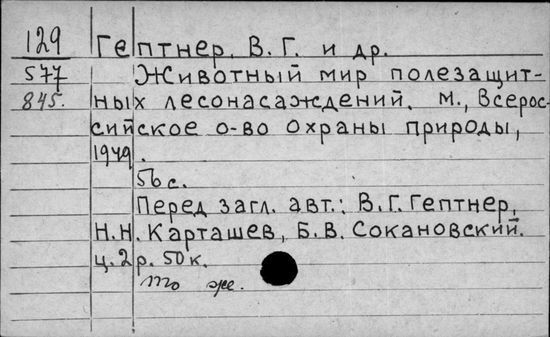 129 Гептнер, В. Г. и др.
577 Животный мир полезащит-
845. ных лесонасаждений. М., Всерос-
сийское о-во охраны природы,
1949.
56 с.
Перед загл. авт.: В.Г. Гептнер,
Н.Н. Карташев, Б.В. Сокановский.
ц. 2 р. 50 к.
то же.